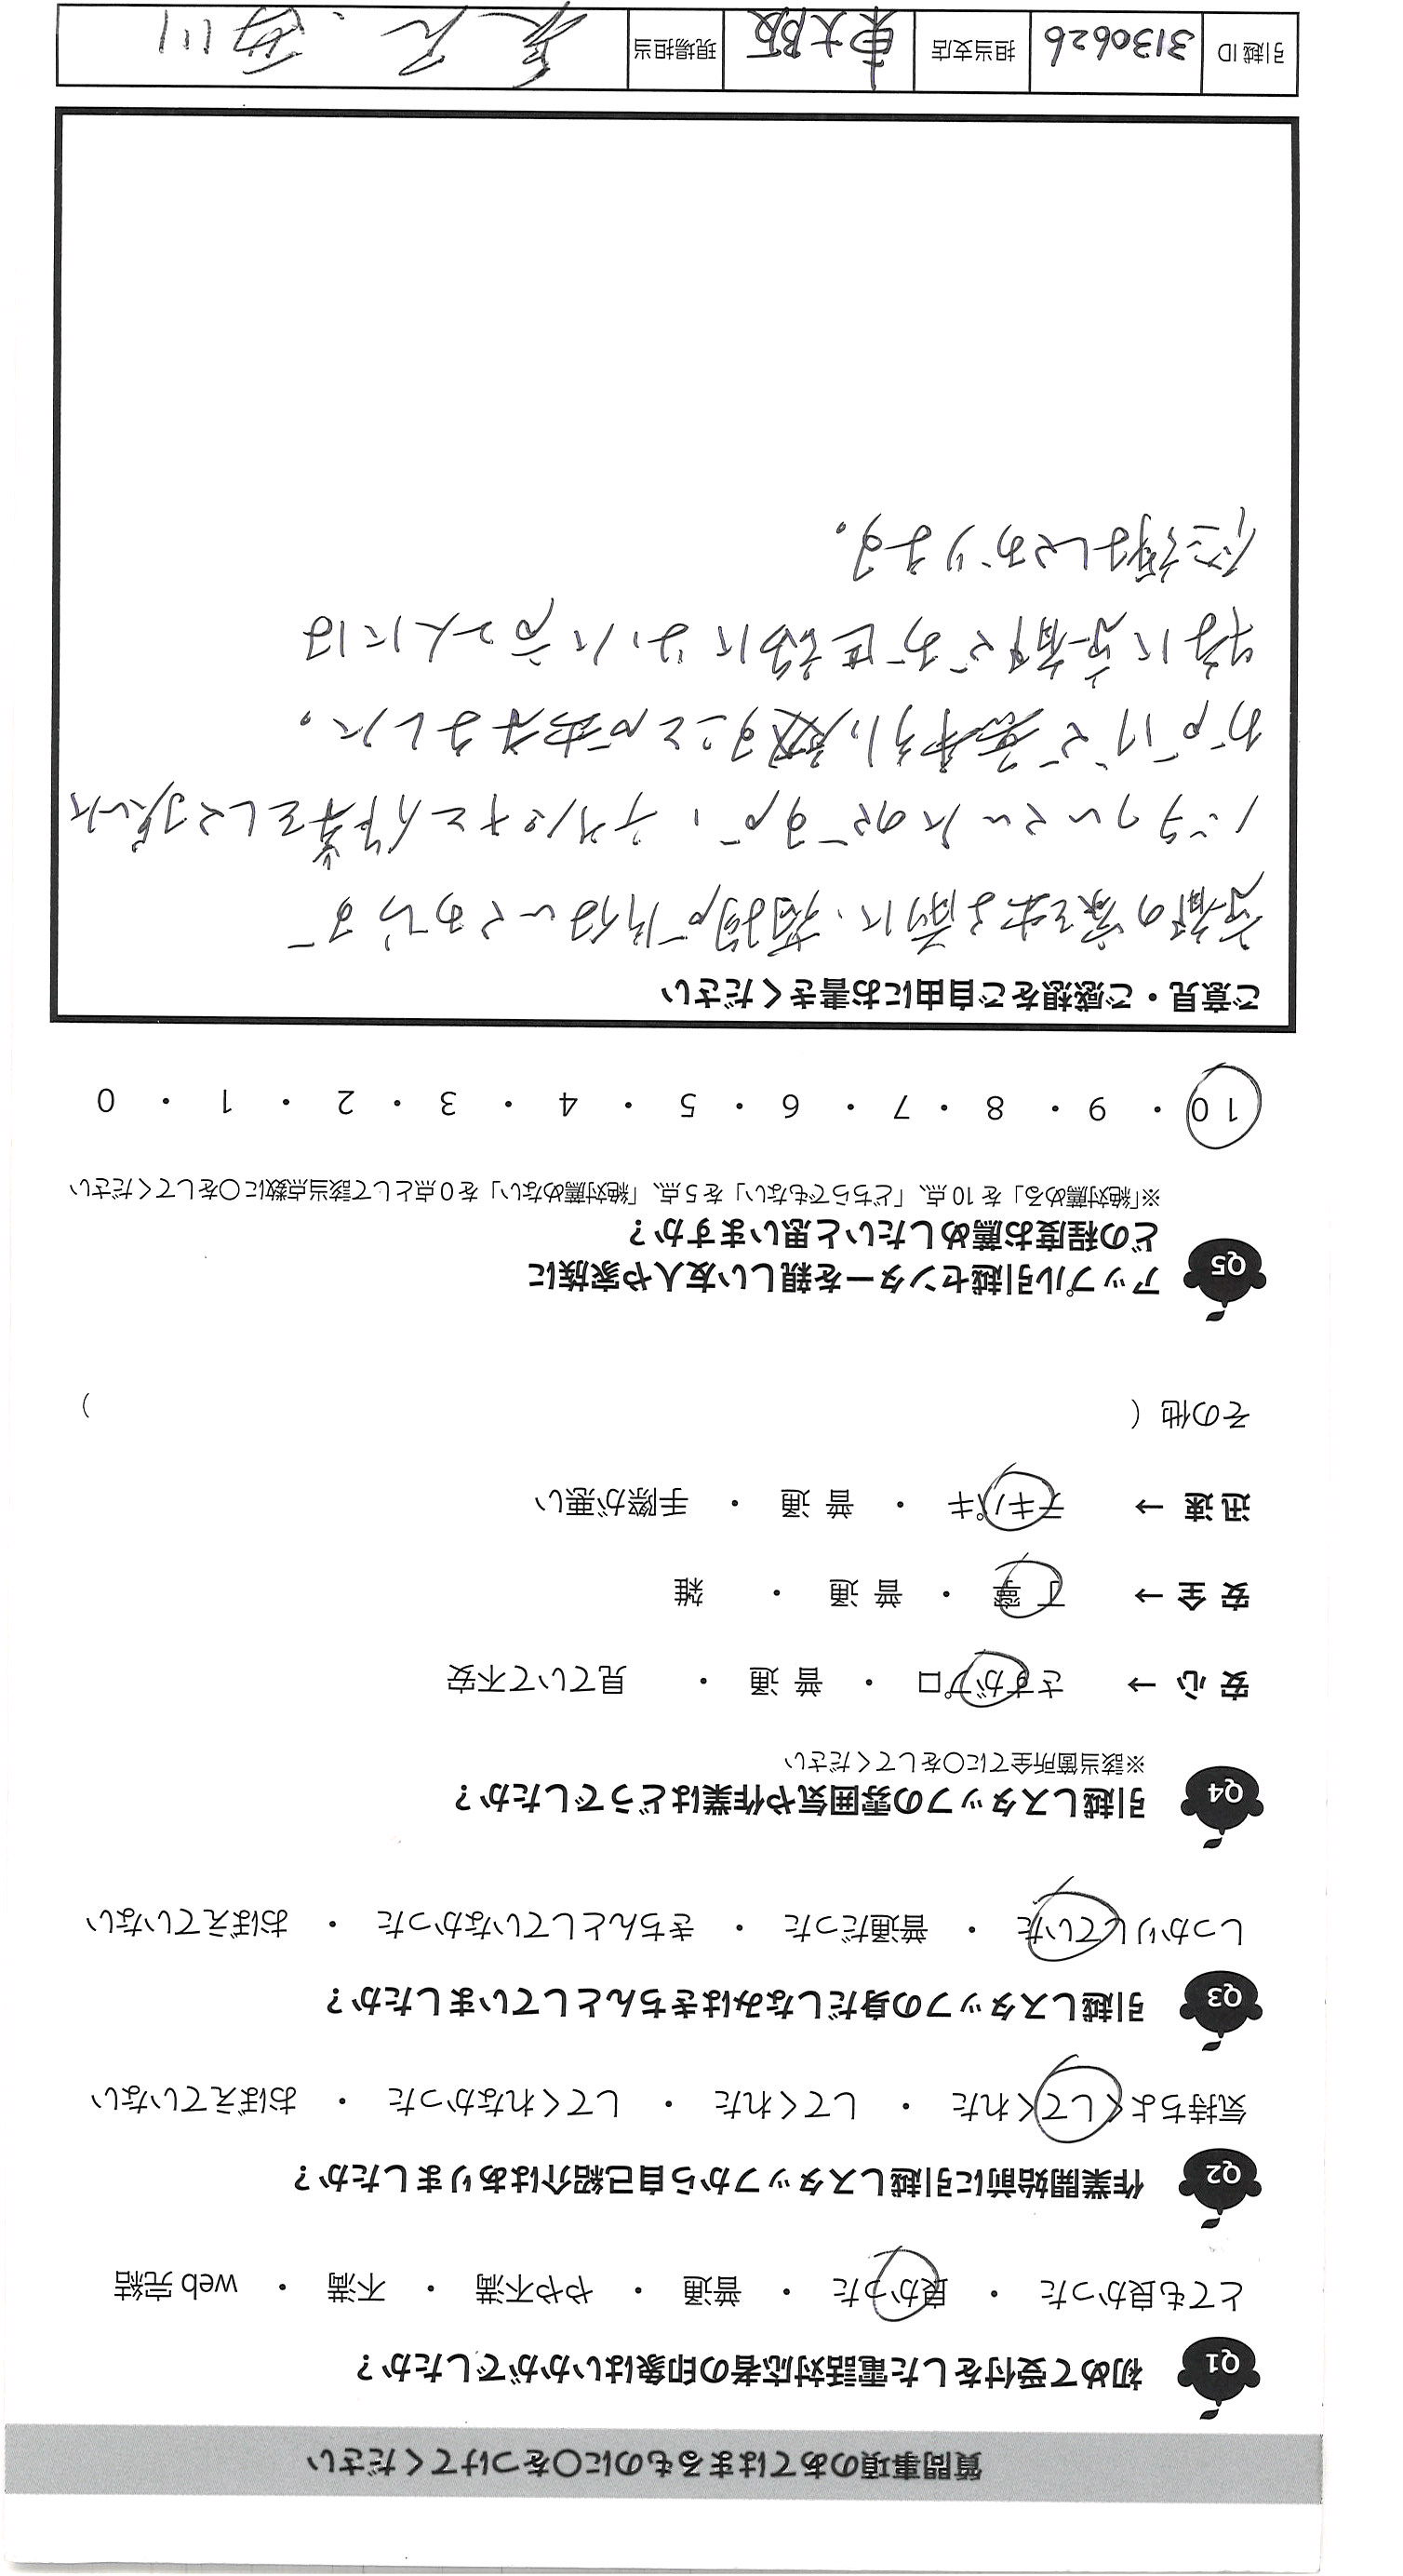 質問事項のあてはまるものに〇をつけてください
Q1 初めて受付をした電話対応者の印象はいかがでしたか？
とても良かった ・ 良かった ・ 普通 ・ やや不満 ・ 不満 ・ web 完結
Q2 作業開始前に引越しスタッフから自己紹介はありましたか？
気持ちよくしてくれた ・ してくれた ・ してくれなかった ・ おぼえていない
Q3 引越しスタッフの身だしなみはきちんとしていましたか？
しっかりしていた ・ 普通だった ・ きちんとしていなかった ・ おぼえていない
Q4 引越しスタッフの雰囲気や作業はどうでしたか？
※該当箇所全てに〇をしてください
安 心 → さすがプロ ・ 普 通 ・ 見ていて不安
安 全 → 丁 寧 ・ 普 通 ・ 雑
迅 速 → テキパキ ・ 普 通 ・ 手際が悪い
その他（ ）
Q5 アップル引越センターを親しい友人や家族に
どの程度お薦めしたいと思いますか？
※「絶対薦める」を 10 点、「どちらでもない」を 5 点、「絶対薦めない」を 0 点として該当点数に〇をしてください
10 ・ 9 ・ 8 ・ 7 ・ 6 ・ 5 ・ 4 ・ 3 ・ 2 ・ 1 ・ 0
ご意見・ご感想をご自由にお書きください
京都の家を出る前に、荷物が片付いておらず
バタついていたのですが、テキパキと作業をして頂いた
おかげで無事引っ越すことが出来ました。
特に京都でお世話になった二人には
感謝しております。
引越 ID 3130626 担当支店 東大阪 現場担当